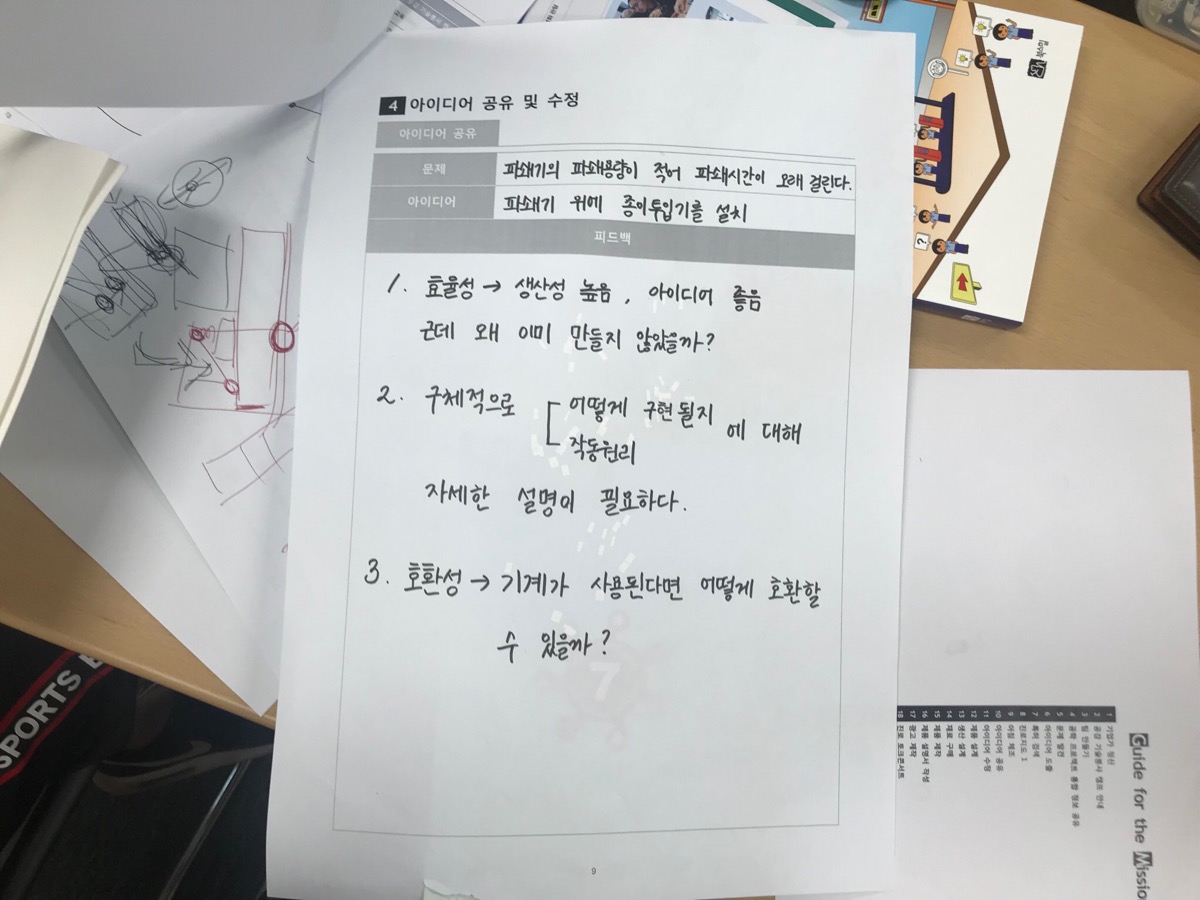 4 아이디어 공유 및 수정
아이디어 공유
문제 파쇄기의 파쇄용량이 적어 파쇄시간이 오래 걸린다.
아이디어 파쇄기 위에 종이투입기를 설치
피드백
1. 효율성 → 생산성 높음, 아이디어 좋음
근데 왜 이미 만들지 않았을까?
2. 구체적으로 [ 어떻게 구현될지
작동원리 에 대해
자세한 설명이 필요하다.
3. 호환성 → 기계가 사용된다면 어떻게 호환할
수 있을까?
7
9
북스힐
?
SPORTS
Guide for the Missio
1 기업가 정신
2 공감 기술봉사 캠프 안내
3 팀 만들기
4 공학 프로젝트 통합 정보 공유
5 문제 발견
6 아이디어 도출
7 특허 검색
8 진로지도 1
9 아침 체조
10 아이디어 공유
11 아이디어 수정
12 제품 설계
13 생산 설계
14 재료 구매
15 제품 제작
16 제품 설명서 작성
17 광고 제작
18 진로 토크콘서트